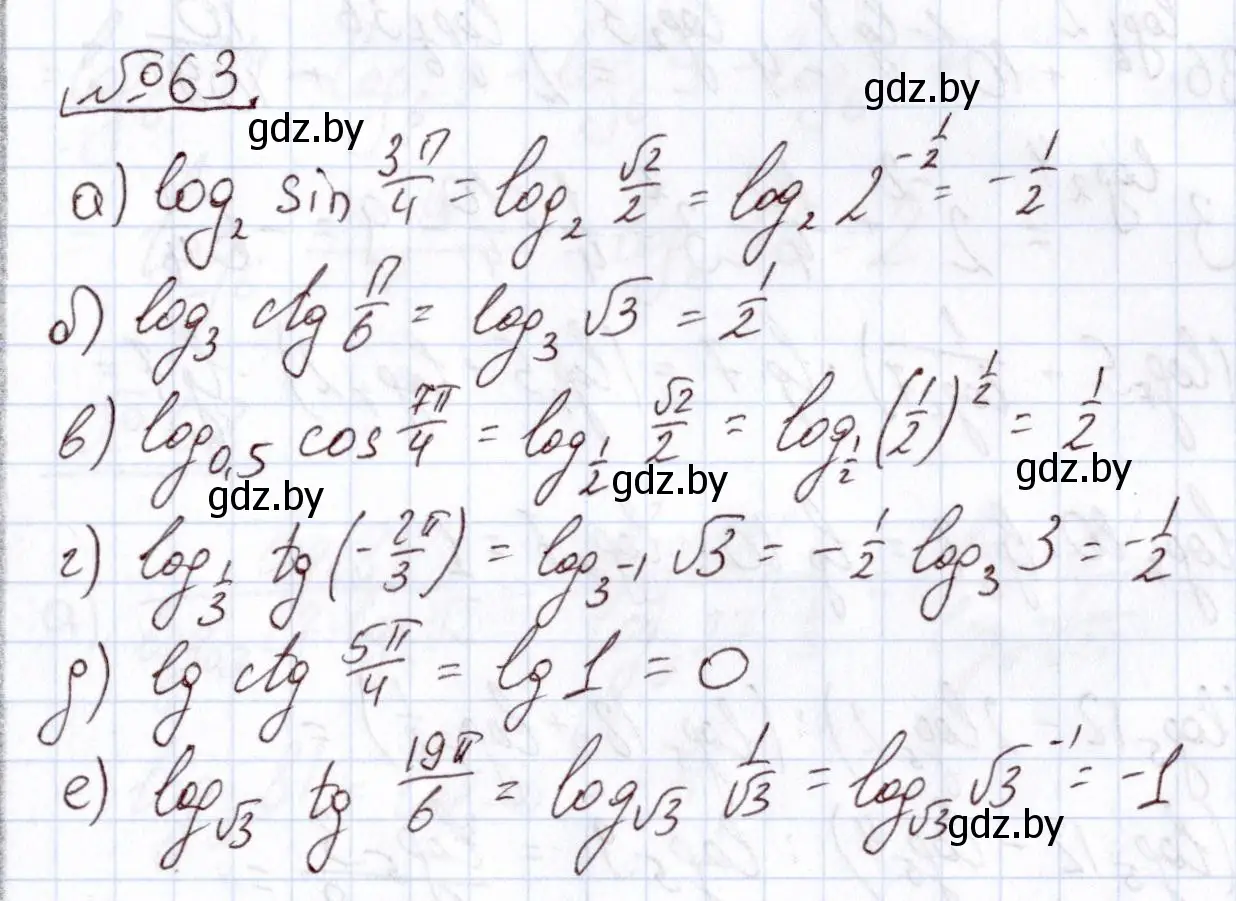 №63
gdz.by
gdz.by
а) log₂ sin 3π/4 = log₂ √2/2 = log₂ 2^(-1/2) = -1/2
б) log₃ ctg π/6 = log₃ √3 = 1/2
в) log₀,₅ cos 7π/4 = log_(1/2) √2/2 = log_(1/2) (1/2)^(1/2) = 1/2
gdz.by
gdz.by
gdz.by
г) log_(1/3) tg(-2π/3) = log_(3^(-1)) √3 = -1/2 log₃ 3 = -1/2
д) lg ctg 5π/4 = lg 1 = 0
е) log_(√3) tg 19π/6 = log_(√3) 1/√3 = log_(√3) √3^(-1) = -1
gdz.by